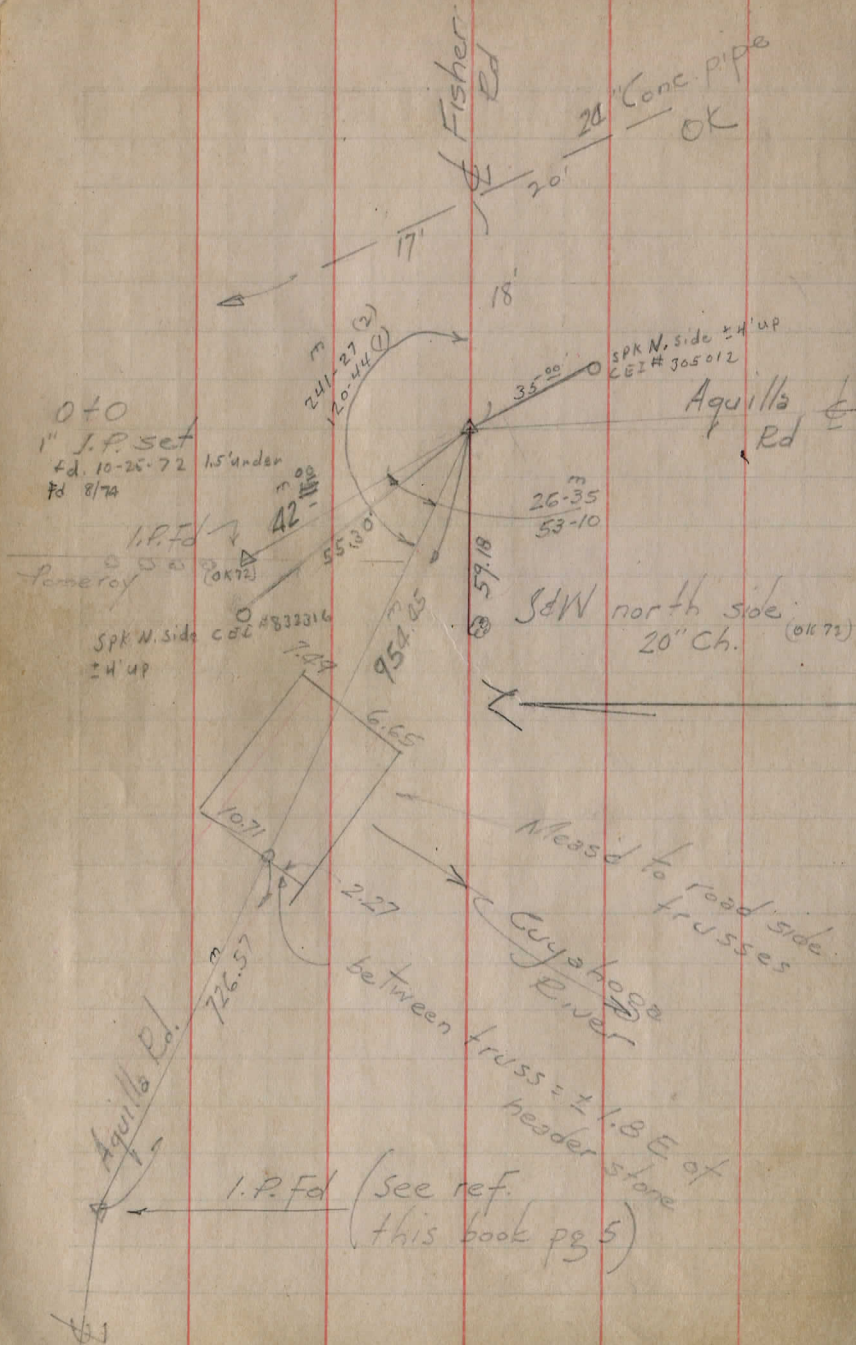 Fisher
Rd
℄
Conc. pipe
OK
20'
17'
18'
241-27 (2)
120-44 (1)
m
35.00
SPK N. side ±4' up
CEI# 305012
Aquilla ℄
Rd
0+0
1" I.P. set
fd. 10-25-72 1.5' under
Fd 8/74
m
42.00
I.P. Fd
(OK72)
Pomeroy
55.30
26-35
m
53-10
59.18
S&W north side
20" Ch. (OK 72)
SPK N. side CEI #833316
±4' up
954.45
m
7.49
6.65
10.71
2.27
Meas'd to road side
trusses
Cuyahoga
River
between truss = ± 1.8 E. of
header stone
726.57
m
Aquilla Rd.
I.P. Fd (see ref.
this book pg 5)